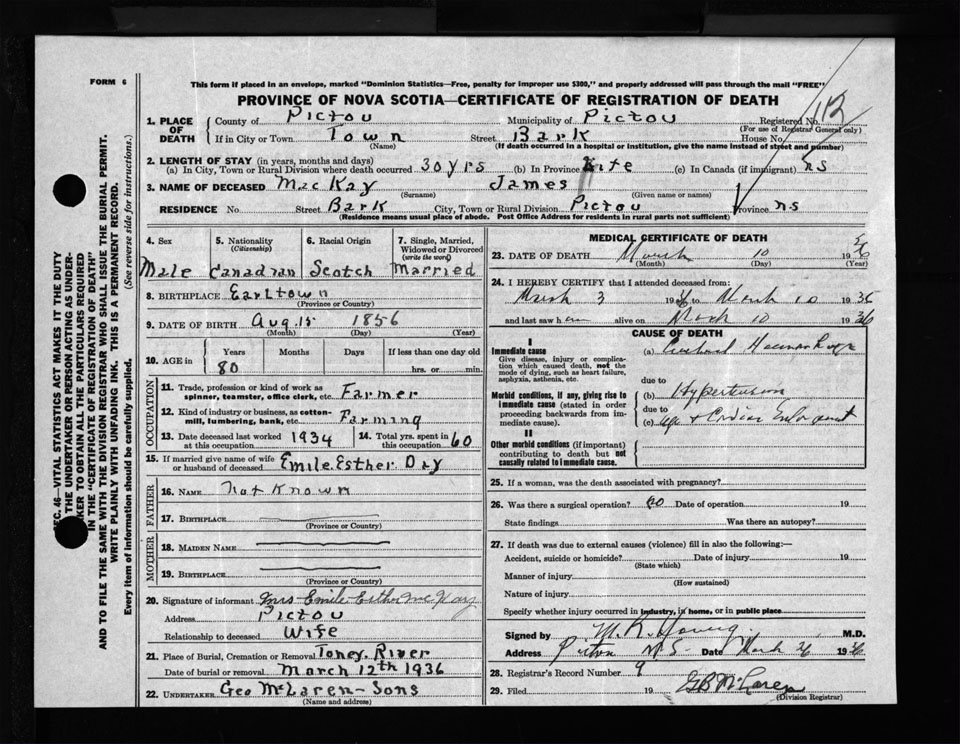 FORM 6
This form if placed in an envelope, marked "Dominion Statistics—Free, penalty for improper use $300," and properly addressed will pass through the mail "FREE"
PROVINCE OF NOVA SCOTIA—CERTIFICATE OF REGISTRATION OF DEATH
1. PLACE OF DEATH
County of Pictou Municipality of Pictou Registered No.
(For use of Registrar General only)
If in City or Town Town Street Bark House No.
(Name) (If death occurred in a hospital or institution, give the name instead of street and number)
2. LENGTH OF STAY (in years, months and days)
(a) In City, Town or Rural Division where death occurred 30 yrs (b) In Province Life (c) In Canada (if immigrant) ns
3. NAME OF DECEASED MacKay James
(Surname) (Given name or names)
RESIDENCE No. Street Bark City, Town or Rural Division Pictou Province ns
(Residence means usual place of abode. Post Office Address for residents in rural parts not sufficient)
4. Sex 5. Nationality (Citizenship) 6. Racial Origin 7. Single, Married, Widowed or Divorced (write the word)
Male Canadian Scotch Married
8. BIRTHPLACE Earltown
(Province or Country)
9. DATE OF BIRTH Aug 15 1856
(Month) (Day) (Year)
10. AGE in Years Months Days If less than one day old
80 hrs. or min.
OCCUPATION
11. Trade, profession or kind of work as spinner, teamster, office clerk, etc. Farmer
12. Kind of industry or business, as cotton-mill, lumbering, bank, etc. Farming
13. Date deceased last worked at this occupation 1934 14. Total yrs. spent in this occupation 60
15. If married give name of wife or husband of deceased Emile Esther Dry
FATHER
16. NAME Not Known
17. BIRTHPLACE
(Province or Country)
MOTHER
18. MAIDEN NAME
19. BIRTHPLACE
(Province or Country)
20. Signature of informant Mrs Emile Esther McKay
Address Pictou
Relationship to deceased Wife
21. Place of Burial, Cremation or Removal Toney River
Date of burial or removal March 12th 1936
22. UNDERTAKER Geo McLaren-Sons
(Name and address)
MEDICAL CERTIFICATE OF DEATH
23. DATE OF DEATH March 10 1936
(Month) (Day) (Year)
24. I HEREBY CERTIFY that I attended deceased from:
March 3 1936 to March 10 1936
and last saw him alive on March 10 1936
CAUSE OF DEATH
I
Immediate cause
Give disease, injury or complication which caused death, not the mode of dying, such as heart failure, asphyxia, asthenia, etc.
(a) Cerebral Hemorrhage
due to
Morbid conditions, if any, giving rise to immediate cause (stated in order proceeding backwards from immediate cause).
(b) Hypertension
due to
(c) Cardiac Enlargement
II
Other morbid conditions (if important) contributing to death but not causally related to immediate cause.
25. If a woman, was the death associated with pregnancy?
26. Was there a surgical operation? no Date of operation 19
State findings Was there an autopsy?
27. If death was due to external causes (violence) fill in also the following:—
Accident, suicide or homicide? Date of injury 19
(State which)
Manner of injury
(How sustained)
Nature of injury
Specify whether injury occurred in industry, in home, or in public place
Signed by M. R. Young M.D.
Address Pictou N S Date March 26 1936
28. Registrar's Record Number 9
29. Filed 19 GB McLaren
(Division Registrar)
SEC. 46—VITAL STATISTICS ACT MAKES IT THE DUTY
THE UNDERTAKER OR PERSON ACTING AS UNDER-
TAKER TO OBTAIN ALL THE PARTICULARS REQUIRED
IN THE "CERTIFICATE OF REGISTRATION OF DEATH"
AND TO FILE THE SAME WITH THE DIVISION REGISTRAR WHO SHALL ISSUE THE BURIAL PERMIT.
WRITE PLAINLY WITH UNFADING INK. THIS IS A PERMANENT RECORD.
Every item of information should be carefully supplied. (See reverse side for instructions.)